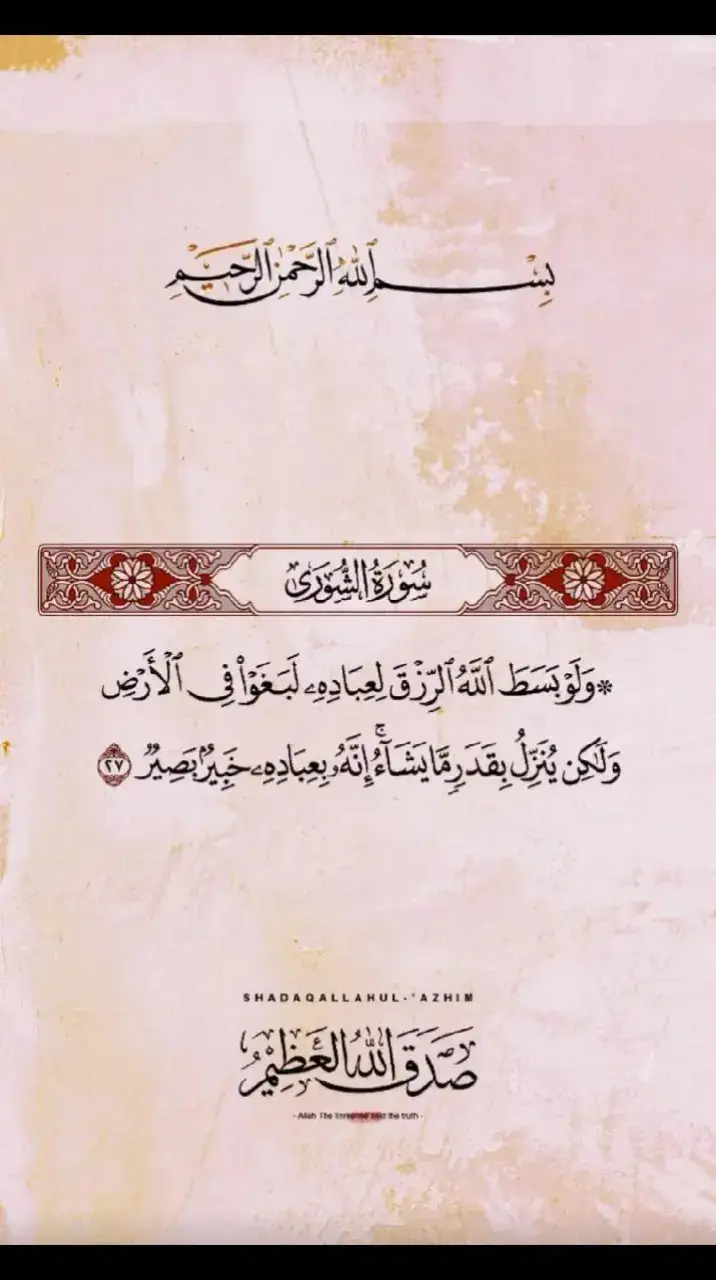 بِسْمِ ٱللَّهِ ٱلرَّحْمَٰنِ ٱلرَّحِيمِ
سُورَةُ الشُّورَىٰ
* وَلَوْ بَسَطَ ٱللَّهُ ٱلرِّزْقَ لِعِبَادِهِۦ لَبَغَوْا۟ فِى ٱلْأَرْضِ
وَلَٰكِن يُنَزِّلُ بِقَدَرٍ مَّا يَشَآءُ ۚ إِنَّهُۥ بِعِبَادِهِۦ خَبِيرٌۢ بَصِيرٌ ٢٧
SHADAQALLAHUL-'AZHIM
صَدَقَ اللهُ العَظِيْمُ
- Allah The Immense said the truth -